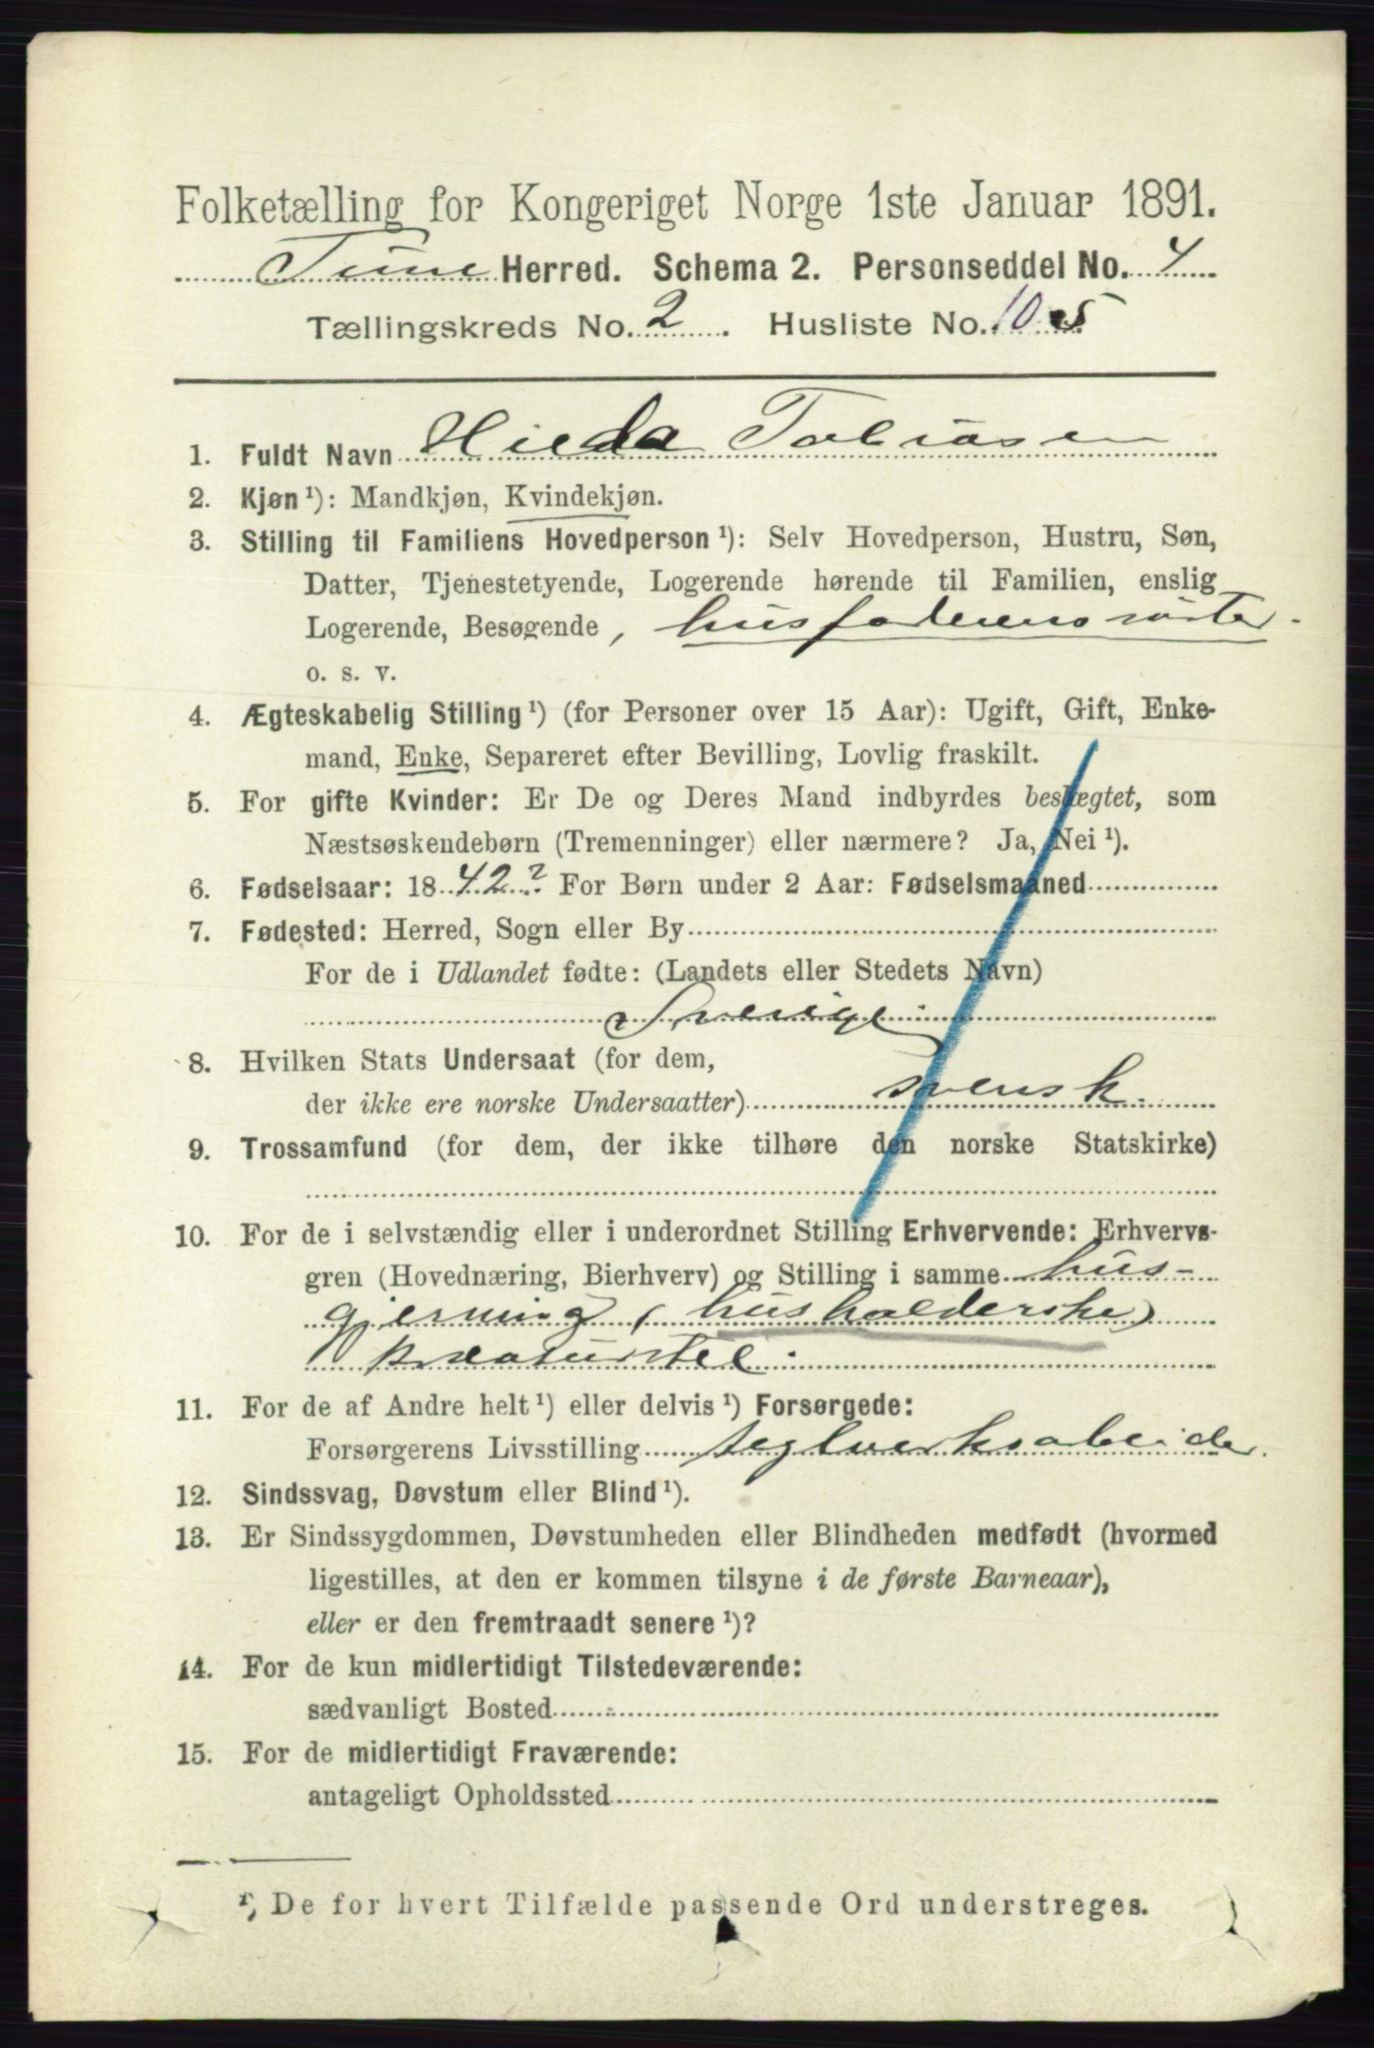 Folketælling for Kongeriget Norge 1ste Januar 1891.
Tune Herred. Schema 2. Personseddel No. 4
Tællingskreds No. 2. Husliste No. 105
1. Fuldt Navn Hilda Tobiasen
2. Kjøn¹): Mandkjøn, Kvindekjøn.
3. Stilling til Familiens Hovedperson¹): Selv Hovedperson, Hustru, Søn,
Datter, Tjenestetyende, Logerende hørende til Familien, enslig
Logerende, Besøgende, husfaderens søster.
o. s. v.
4. Ægteskabelig Stilling¹) (for Personer over 15 Aar): Ugift, Gift, Enke-
mand, Enke, Separeret efter Bevilling, Lovlig fraskilt.
5. For gifte Kvinder: Er De og Deres Mand indbyrdes beslægtet, som
Næstsøskendebørn (Tremenninger) eller nærmere? Ja, Nei¹).
6. Fødselsaar: 1842? For Børn under 2 Aar: Fødselsmaaned
7. Fødested: Herred, Sogn eller By
For de i Udlandet fødte: (Landets eller Stedets Navn)
Sverige
8. Hvilken Stats Undersaat (for dem,
der ikke ere norske Undersaatter) svensk.
9. Trossamfund (for dem, der ikke tilhøre den norske Statskirke)
10. For de i selvstændig eller i underordnet Stilling Erhvervende: Erhvervs-
gren (Hovednæring, Bierhverv) og Stilling i samme hus-
gjerning (husholderske)
kreaturstel.
11. For de af Andre helt¹) eller delvis¹) Forsørgede:
Forsørgerens Livsstilling teglverksabeider.
12. Sindssvag, Døvstum eller Blind¹).
13. Er Sindssygdommen, Døvstumheden eller Blindheden medfødt (hvormed
ligestilles, at den er kommen tilsyne i de første Barneaar),
eller er den fremtraadt senere¹)?
14. For de kun midlertidigt Tilstedeværende:
sædvanligt Bosted
15. For de midlertidigt Fraværende:
antageligt Opholdssted
¹) De for hvert Tilfælde passende Ord understreges.